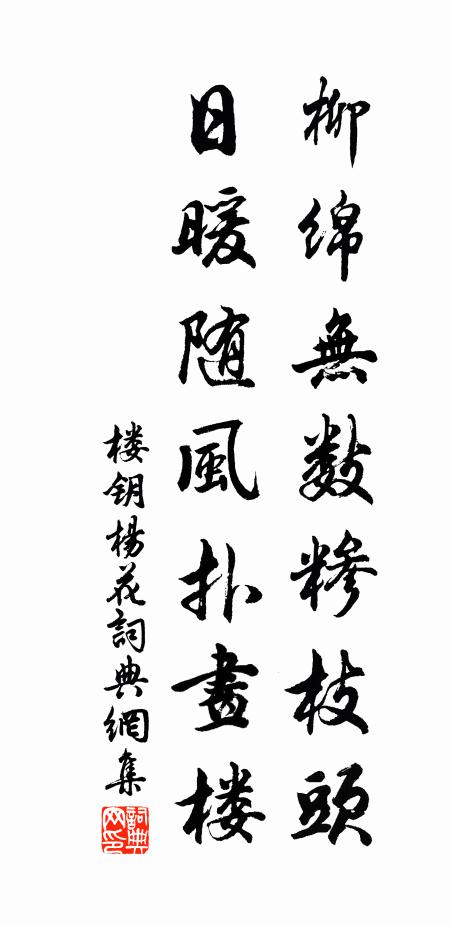 柳绵無数糁枝頭
日暖随風扑畫楼
楼钥楊花詞典網集
詞典网印